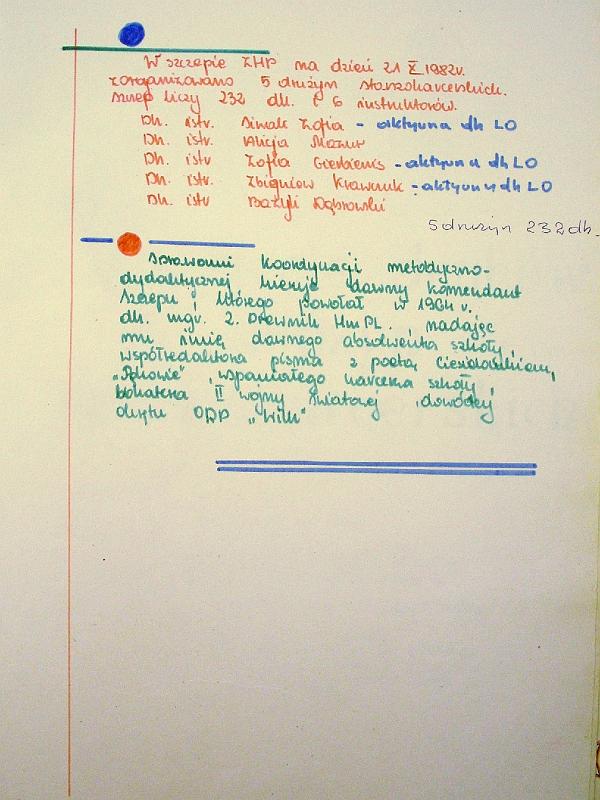 W szczepie ZHP na dzień 21 X 1982r.
zorganizowano 5 drużyn starszoharcerskich.
Szczep liczy 232 dh. i 6 instruktorów.
Dh. istr. Siwak Zofia - aktywna dh LO
Dh. istr. Alicja Mazur
Dh. istr Zofia - aktywna dh LO
Dh. istr. Zbigniew Krawczuk - aktywny dh LO
Dh. istr Bazyli Dąbrowski
5 drużyn 232 dh.
Sprawami koordynacji metodyczno-
dydaktycznej kieruje dawny komendant
szczepu, którego powołał w 1964 r.
dh. mgr. Z. Drewnik Hm PL., nadając
mu imię dawnego absolwenta szkoły,
współredaktora pisma z poetą
wspaniałego harcerza szkoły,
bohatera II wojny światowej, dowódcy
okrętu ORP „Wilk"